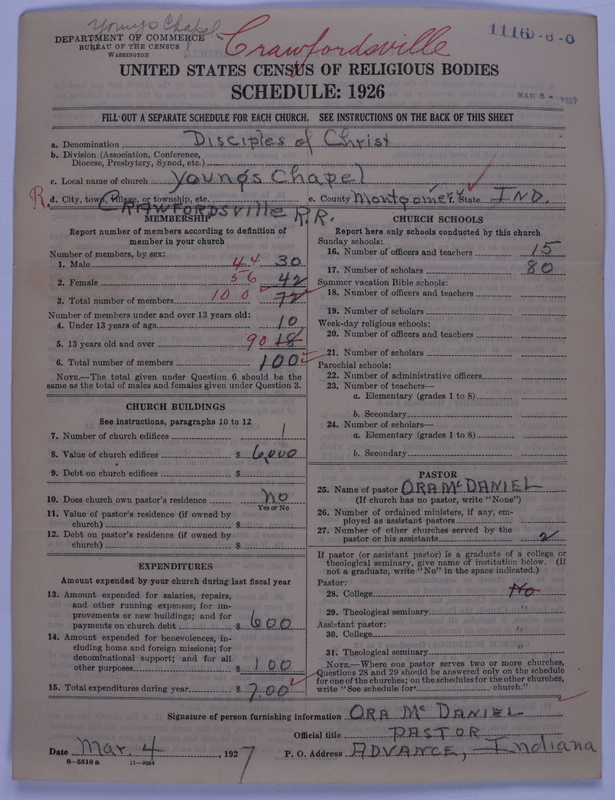 Youngs Chapel
DEPARTMENT OF COMMERCE
BUREAU OF THE CENSUS
WASHINGTON
Crawfordsville
1116
MAR 8 - 1927
UNITED STATES CENSUS OF RELIGIOUS BODIES
SCHEDULE: 1926
FILL OUT A SEPARATE SCHEDULE FOR EACH CHURCH. SEE INSTRUCTIONS ON THE BACK OF THIS SHEET
a. Denomination Disciples of Christ
b. Division (Association, Conference,
Diocese, Presbytery, Synod, etc.)
c. Local name of church Youngs Chapel
R. d. City, town, village, or township, etc. CRAWFORDSVille R.R. e. County Montgomery State IND.
MEMBERSHIP
Report number of members according to definition of
member in your church
Number of members, by sex:
1. Male 44 30
2. Female 56 42
3. Total number of members 100 72
Number of members under and over 13 years old:
4. Under 13 years of age 10
5. 13 years old and over 90 18
6. Total number of members 100
NOTE.—The total given under Question 6 should be the
same as the total of males and females given under Question 3.
CHURCH BUILDINGS
See instructions, paragraphs 10 to 12
7. Number of church edifices 1
8. Value of church edifices $ 6,000
9. Debt on church edifices $
10. Does church own pastor's residence No
Yes or No
11. Value of pastor's residence (if owned by
church) $
12. Debt on pastor's residence (if owned by
church) $
EXPENDITURES
Amount expended by your church during last fiscal year
13. Amount expended for salaries, repairs,
and other running expenses; for im-
provements or new buildings; and for
payments on church debt $ 600
14. Amount expended for benevolences, in-
cluding home and foreign missions; for
denominational support; and for all
other purposes $ 100
15. Total expenditures during year $ 7.00
CHURCH SCHOOLS
Report here only schools conducted by this church
Sunday schools:
16. Number of officers and teachers 15
17. Number of scholars 80
Summer vacation Bible schools:
18. Number of officers and teachers
19. Number of scholars
Week-day religious schools:
20. Number of officers and teachers
21. Number of scholars
Parochial schools:
22. Number of administrative officers
23. Number of teachers—
a. Elementary (grades 1 to 8)
b. Secondary
24. Number of scholars—
a. Elementary (grades 1 to 8)
b. Secondary
PASTOR
25. Name of pastor ORA McDANIEL
(If church has no pastor, write "None")
26. Number of ordained ministers, if any, em-
ployed as assistant pastors
27. Number of other churches served by the
pastor or his assistants 2
If pastor (or assistant pastor) is a graduate of a college or
theological seminary, give name of institution below. (If
not a graduate, write "No" in the space indicated.)
Pastor:
28. College No
29. Theological seminary "
Assistant pastor:
30. College "
31. Theological seminary "
NOTE.—Where one pastor serves two or more churches,
Questions 28 and 29 should be answered only on the schedule
for one of the churches; on the schedules for the other churches,
write "See schedule for church."
Signature of person furnishing information ORA Mc DANIEL
Official title PASTOR
Date Mar. 4, 1927 P. O. Address ADVANCE, Indiana
8-5519 a